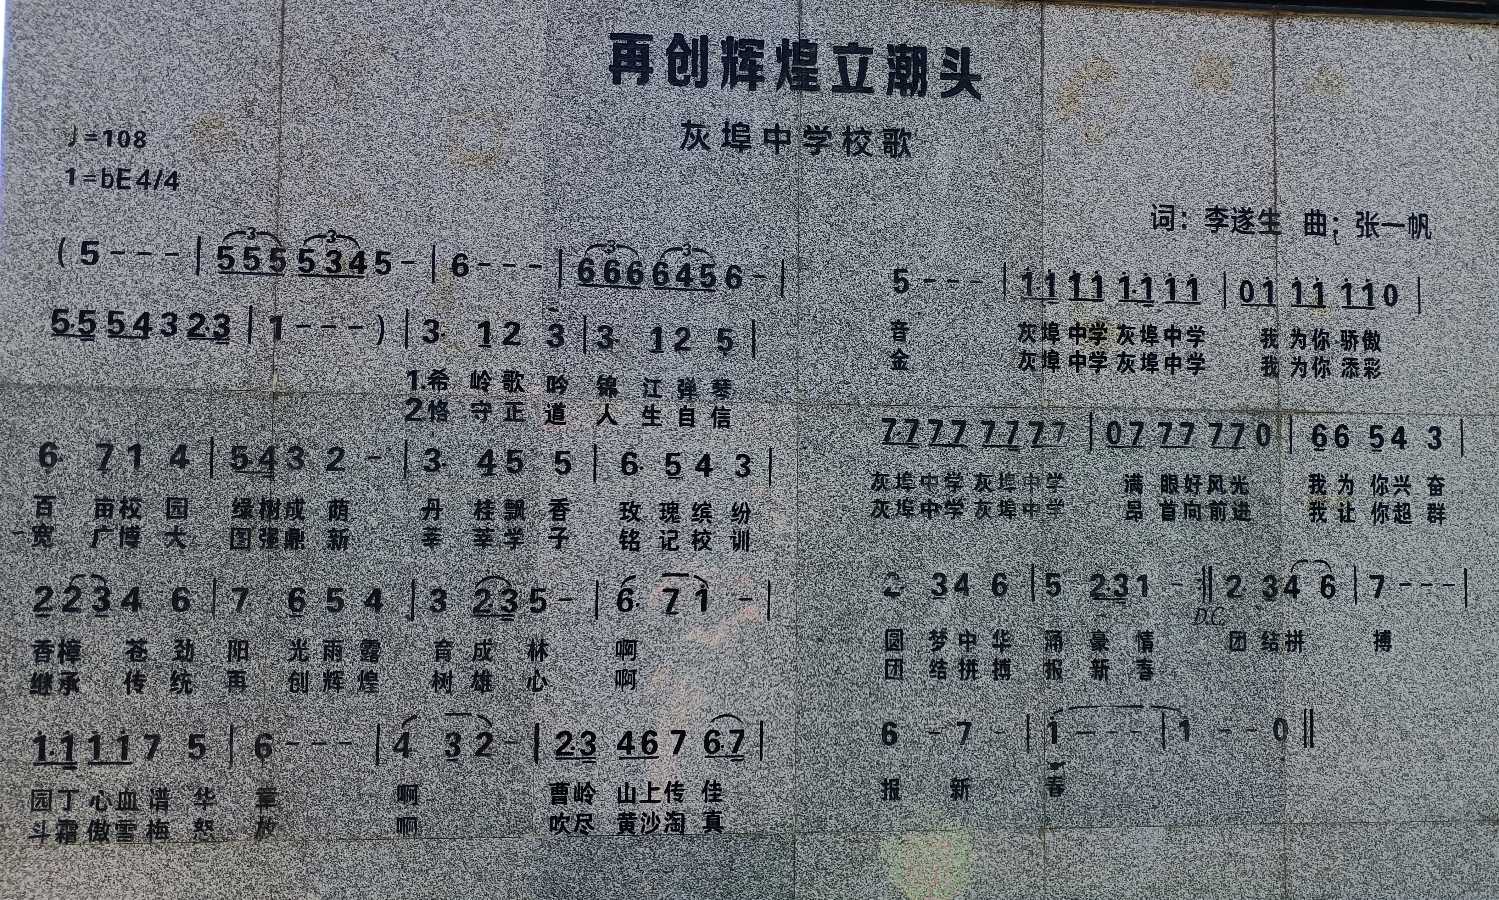 再创辉煌立潮头
灰埠中学校歌
♩=108
1=bE 4/4
词：李遂生 曲：张一帆
( 5 - - - | 5 5 5 5 3 4 5 - | 6 - - - | 6 6 6 6 4 5 6 - |
5·5 5 4 3 2·3 | 1 - - - ) | 3· 1 2 3 | 3· 1 2 5 |
1.希 岭 歌 吟 锦 江 弹 琴
2 恪 守 正 道 人 生 自 信
6· 7 1 4 | 5 4 3 2 - | 3· 4 5 5 | 6· 5 4 3 |
百 亩 校 园 绿 树 成 荫 丹 桂 飘 香 玫 瑰 缤 纷
宽 广 博 大 图 强 鼎 新 莘 莘 学 子 铭 记 校 训
2 2 3 4 6 | 7 6 5 4 | 3 2·3 5 - | 6· 7 1 - |
香 樟 苍 劲 阳 光 雨 露 育 成 林 啊
继 承 传 统 再 创 辉 煌 树 雄 心 啊
1·1 1 1 7 5 | 6 - - - | 4 3 2 - | 2·3 4 6 7 6·7 |
园 丁 心 血 谱 华 章 啊 曹 岭 山 上 传 佳
斗 霜 傲 雪 梅 怒 放 啊 吹 尽 黄 沙 淘 真
5 - - - | 1 1 1 1 1·1 1 1 | 0 1 1 1 1 1 0 |
音 灰 埠 中 学 灰 埠 中 学 我 为 你 骄 傲
金 灰 埠 中 学 灰 埠 中 学 我 为 你 添 彩
7 7 7 7 7 7 7 7 | 0 7 7 7 7 7 0 | 6 6 5 4 3 |
灰 埠 中 学 灰 埠 中 学 满 眼 好 风 光 我 为 你 兴 奋
灰 埠 中 学 灰 埠 中 学 昂 首 向 前 进 我 让 你 超 群
2 3 4 6 | 5 2·3 1 - :‖ 2· 3 4 6 | 7 - - - |
D.C.
圆 梦 中 华 涌 豪 情 团 结 拼 搏
团 结 拼 搏 报 新 春
6 - 7 - | 1 - - - | 1 - - 0 ‖
报 新 春